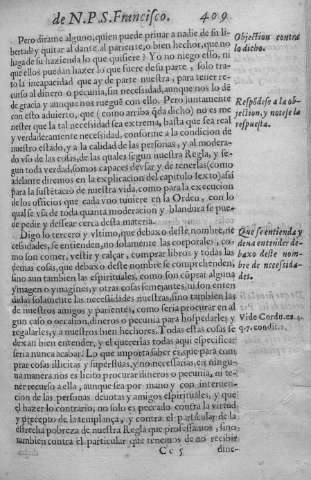 de N. P. S. Francisco. 409
Pero dirame alguno, quien puede priuar a nadie de su li-
bertad, y quitar al dante, al pariente, o bien hechor, que no
haga de su hazienda lo que quisiere? Yo no niego ello, ni
que ellos puedan hazer lo que fuere de su parte, solo tra-
to la incapacidad que ay de parte nuestra, para tener re-
curso al dinero o pecunia, sin necesidad, aunque nos lo dé
de gracia y aunque nos ruegue con ello. Pero juntamente
con esto aduierto, que (como arriba queda dicho) no es me
nester que la tal necessidad sea extrema, basta que sea real
y verdaderamente necessidad, conforme a la condicion de
nuestro estado, y a la calidad de las personas, y al modera-
do vso de las cosas, de las quales segun nuestra Regla, y se-
gun toda verdad, somos capaces de vsar y de tenerlas (como
adelante diremos en la explicacion del capitulo sexto) assi
para la sustentació de nuestra vida, como para la execucion
de los officios que cada vno tuuiere en la Orden, con lo
qual se vsa de toda quanta moderacion y blandura se pue-
de pedir y dessear cerca desta materia.
Digo lo tercero y vltimo, que debaxo deste nombre, ne
cesidades, se entienden, no solamente las corporales, co-
mo son comer, vestir y calçar, comprar libros y todas las
demas cosas, que debaxo deste nombre se comprehenden,
sino aun tambien las espirituales, como son coprar alguna
ymagen o ymagines, y otras cosas semejantes, ni son enten
didas solamente las necesidades nuestras, sino tambien las
de nuestros amigos y parientes, como seria procurar en al
gun caso o ocasion, dineros o pecunia para hospedarles y
regalarles, y a nuestros bien hechores. Todas estas cosas se
dexan bien entender, y el quererlas todas aqui especificar
seria nunca acabar. Lo que importa saber es, que para com
prar cosas illicitas y superfluas, y no necessarias, en ningu-
na manera nos es licito procurar dineros o pecunia, ni te-
ner recurso a ella, aunque sea por mano y con interuen-
cion de las personas deuotas y amigos espirituales, y que
el hazer lo contrario, no solo es peccado contra la virtud
y precepto de la templança, y contra el particular de la
estrecha pobreza de nuestra Regla que professamos, sino
tambien contra el particular que tenemos de no recibir
Cc 5 dine-
Objection contra
lo dicho.
Respódese a la ob-
jection, y notese la
respuesta.
Que se entienda y
deua entender de-
baxo deste nom-
bre de necesida-
des.
Vide Cordu. ca. 4.
q. 7. condit. 1.